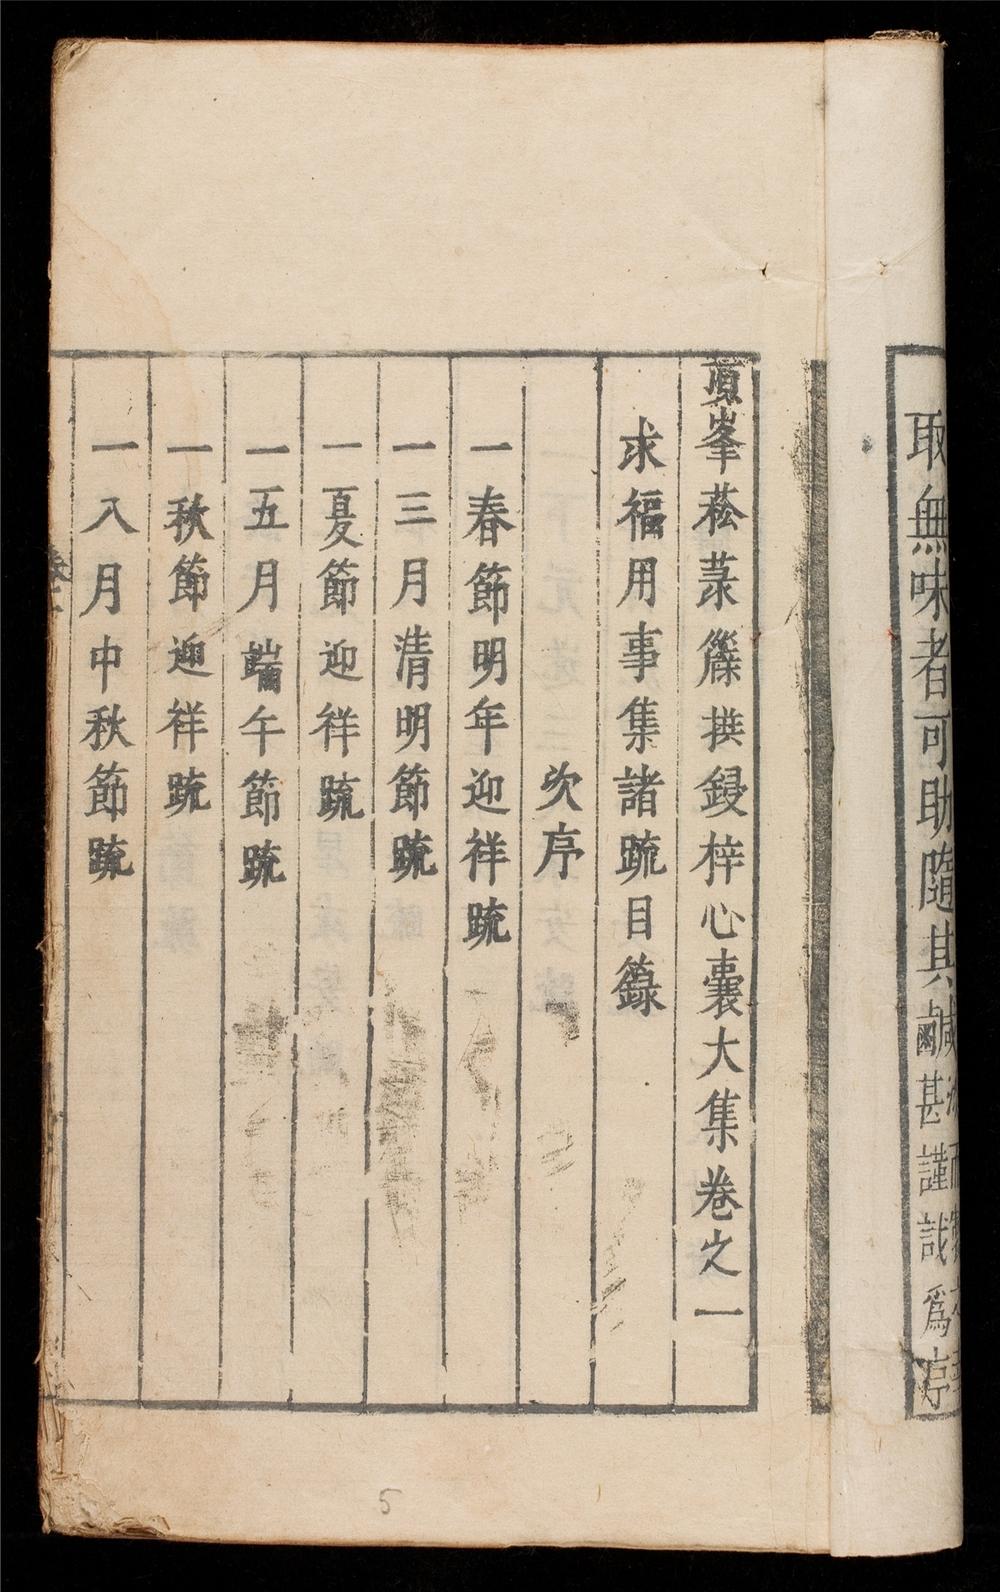 取無味者可助隨其鹹
甚謹哉爲序
頂峯菘菉篠拱鋟梓心囊大集卷之一
求福用事集諸䟽目籙
次序
一春節明年迎祥䟽
一三月清明節䟽
一夏節迎祥䟽
一五月端午節䟽
一秋節迎祥䟽
一八月中秋節䟽
5